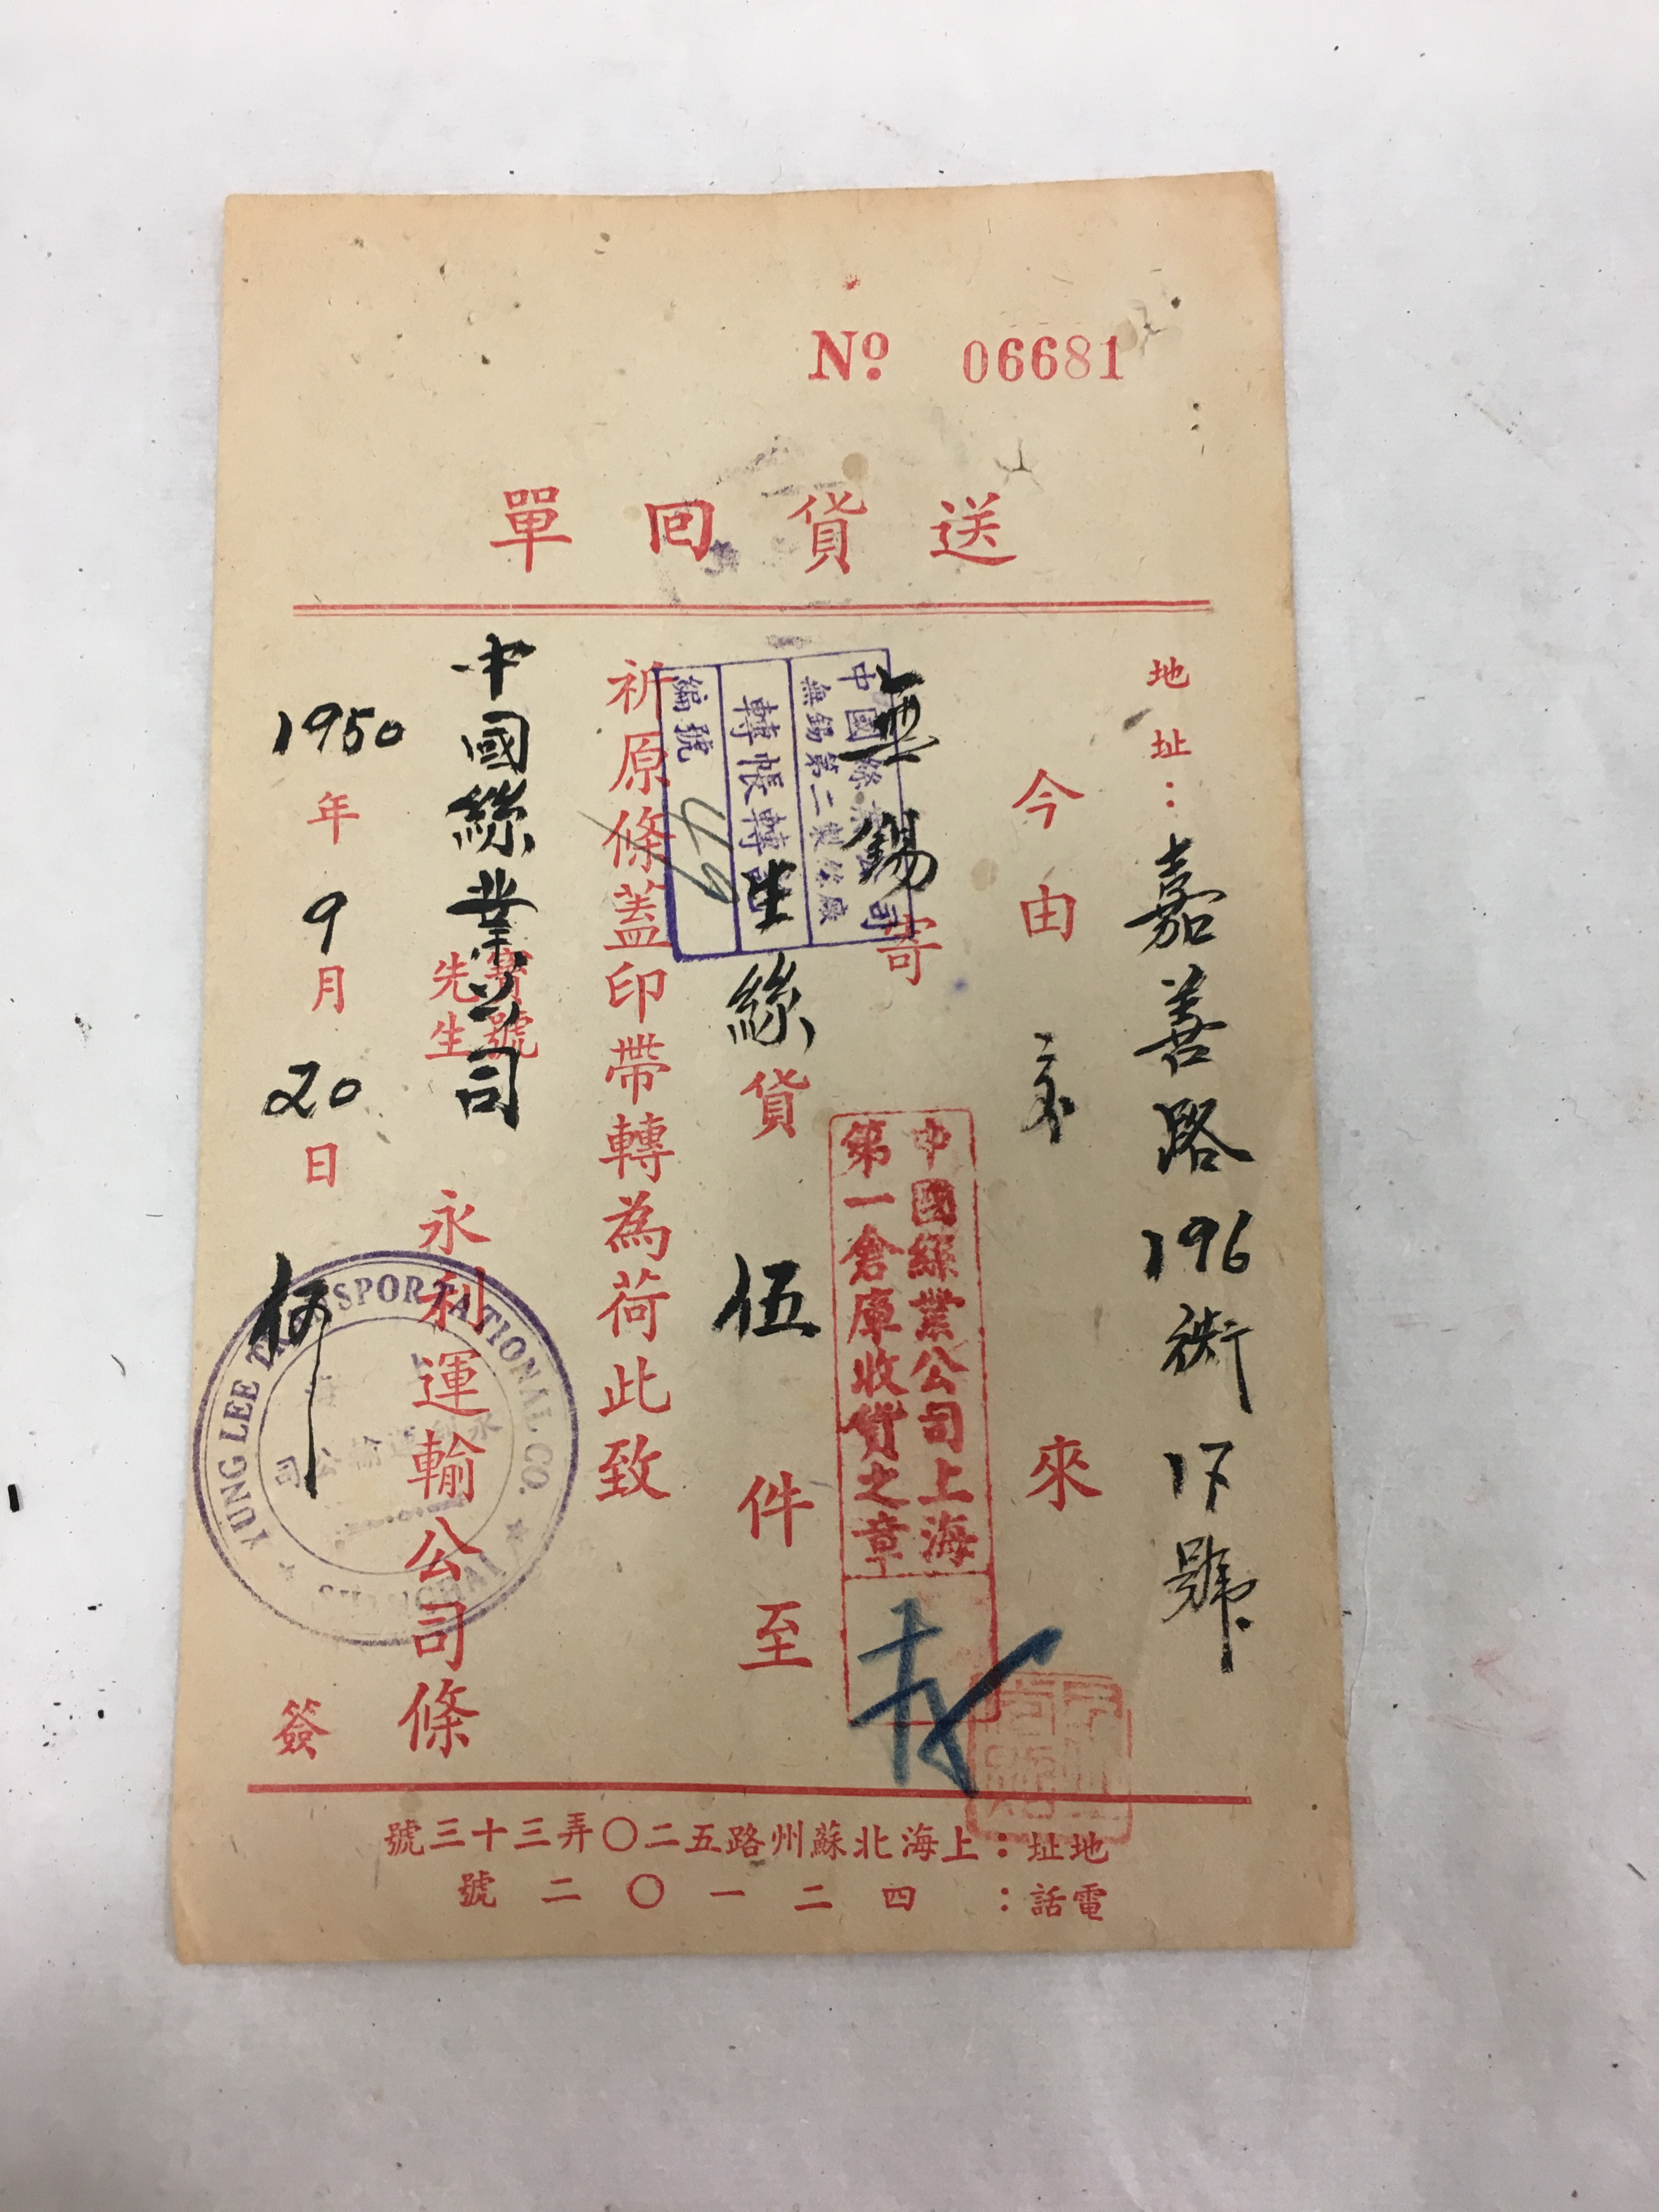 No. 06681
送貨回單
地址：嘉善路196衖17號
今由 來
無錫寄
生絲貨伍件至
祈原條蓋印帶轉為荷此致
中國絲業公司
寶號
先生
永利運輸公司條
1950年9月20日
簽
中國絲業公司
無錫第二製絲廠
轉帳轉訖
編號
中國絲業公司上海
第一倉庫收貨之章
YUNG LEE TRANSPORTATIONAL CO.
永利運輸公司
SHANGHAI
地址：上海北蘇州路五二〇弄三十三號
電話：四二一〇二號